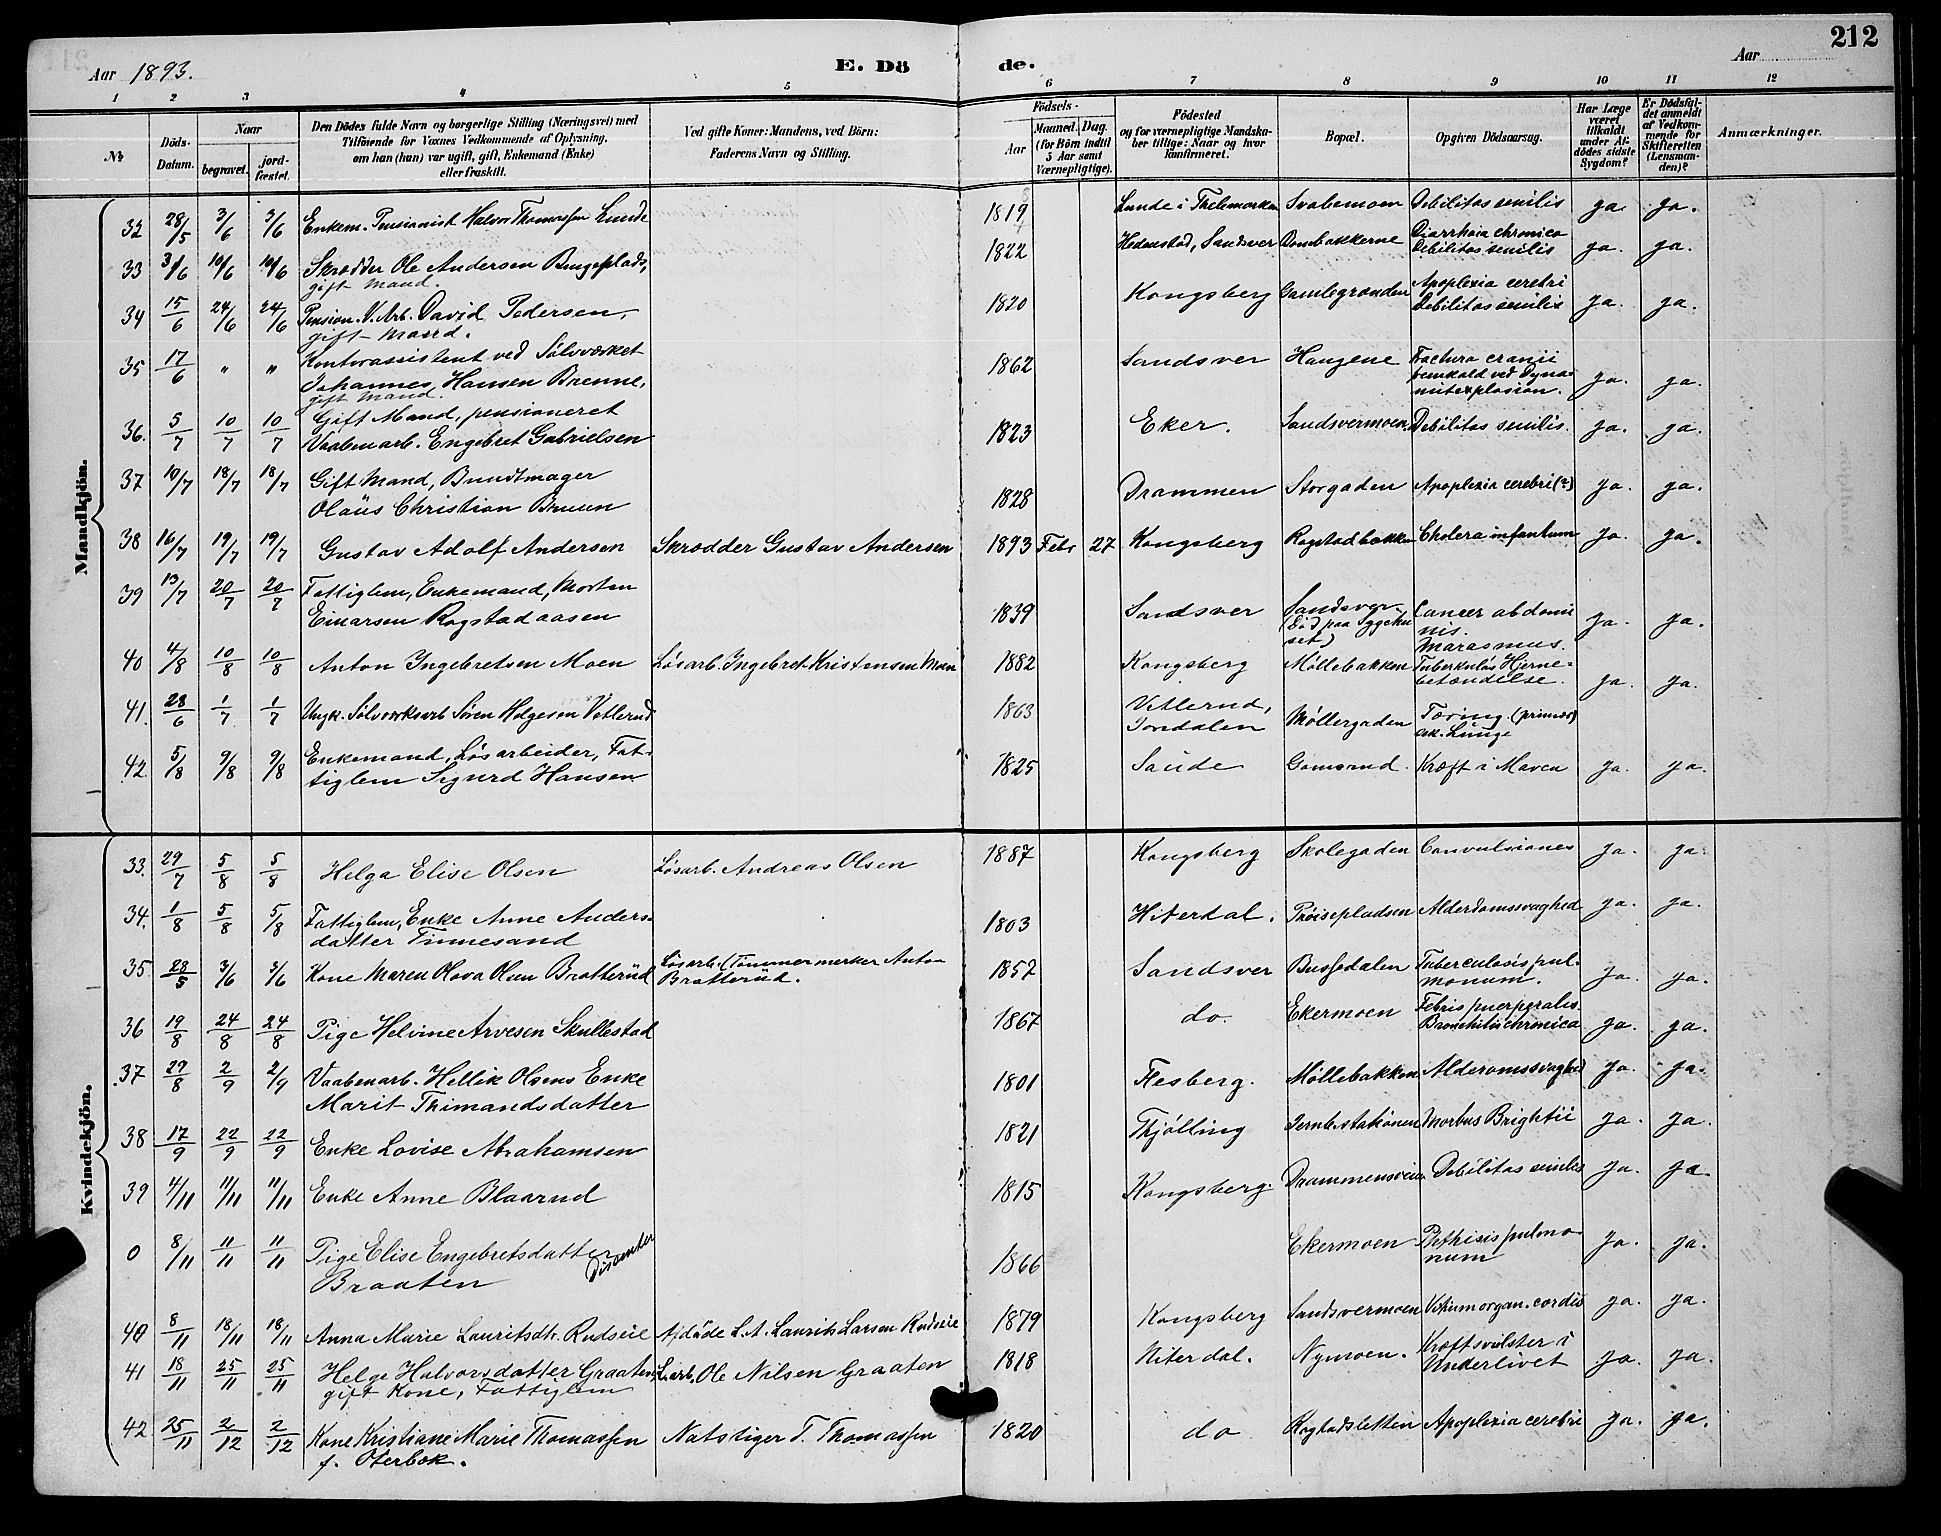 212
Aar 1893. E. Dö de. Aar
1 2 3 4 5 6 7 8 9 10 11 12
№ Döds-Datum. Naar begravet. jordfæstet. Den Dödes fulde Navn og borgerlige Stilling (Næringsvei) med Tilföiende for Voxnes Vedkommende af Oplysning, om han (hun) var ugift, gift, Enkemand (Enke) eller fraskilt. Ved gifte Koner: Mandens, ved Börn: Faderens Navn og Stilling. Födsels- Aar Maaned. Dag. (for Börn indtil 5 Aar samt Værnepligtige). Födested og for værnepligtige Mandskaber tillige: Naar og hvor konfirmeret. Bopæl. Opgiven Dödsaarsag. Har Læge været tilkaldt under Afdödes sidste Sygdom? Er Dödsfaldet anmeldt af Vedkommende for Skifteretten (Lensmanden)? Anmærkninger.
Mandkjön.
32 28/5 3/6 3/6 Enkem. Pensionist Halvor Thomassen Lunde 1819 Lunde i Thelemarken Svabemoen Debilitas senilis ja. ja.
33 3/6 10/6 10/6 Skrædder Ole Andersen Bingeplads, gift Mand. 1822 Hedenstad, Sandsver Dombakkerne Diarrhoia chronica Debilitas senilis ja. ja.
34 15/6 24/6 24/6 Pension. V. Arb. David Pedersen, gift Mand. 1820 Kongsberg Gamlegrænden Apoplexia cerebri Debilitas senilis ja. ja.
35 17/6 " " Kontorassistent ved Sølvværket Johannes Hansen Brenne, gift Mand. 1862 Sandsver Haugene Fractura cranii fremkald ved Dynamitexplosion. ja. ja.
36. 5/7 10/7 10/7 Gift Mand, pensioneret Vaabenarb. Engebret Gabrielsen 1823 Eker. Sandsvermoen. Debilitas senilis. ja. ja.
37 10/7 18/7 18/7 Gift Mand, Bundtmager Olaus Christian Bruun 1828 Drammen Storgaden Apoplexia cerebri (?) ja. ja.
38 16/7 19/7 19/7 Gustav Adolf Andersen Skrædder Gustav Andersen 1893 Febr 27 Kongsberg Rogstadbakken Cholera infantum ja. ja.
39 13/7 20/7 20/7 Fattiglem, Enkemand, Morten Einarsen Rogstadaasen 1839 Sandsver Sandsver- (Død paa Sygehuset) Cancer abdominis. Marasmus. ja. ja.
40 4/8 10/8 10/8 Anton Ingebretsen Moen Løsarb. Ingebret Kristensen Moen 1882 Kongsberg Møllebakken Tuberkuløs Hjernebetændelse. ja. ja.
41. 28/6 1/7 1/7 Ungk. Sølvværksarb Søren Helgesen Vetlerud 1863 Vetlerud, Jondalen Møllergaden Tæring (primær) ja. ja.
42 5/8 9/8 9/8 Enkemand, Løsarbeider, Fattiglem Sigurd Hansen 1825 Saude Gomsrud. Kræft i Maven ja. ja.
Kvindekjön.
33. 29/7 5/8 5/8 Helga Elise Olsen Løsarb. Andreas Olsen 1887 Kongsberg Skolegaden Convulsiones ja. ja.
34. 1/8 5/8 5/8 Fattiglem, Enke Anne Andersdatter Tinnesand 1803 Hiterdal. Prøisepladsen Alderdomssvaghed ja. ja.
35 28/5 3/6 3/6 Kone Maren Olava Olsen Bratterud Løsarb. (Tømmermerker Anton Bratterud. 1857 Sandsver Bussedalen Tuberculosis pulmonum. ja. ja.
36 19/8 24/8 24/8 Pige Helvine Arvesen Skullestad 1867 do. Ekermoen Febris puerperalis Bronchitis chronica ja. ja.
37 29/8 2/9 2/9 Vaabenarb. Hellik Olsens Enke Marit Thimandsdatter 1801 Flesberg. Møllebakken Alderomssvaghed ja. ja.
38 17/9 22/9 22/9 Enke Lovise Abrahamsen 1821 Thjølling Jernb.stationen Morbus Brightii ja. ja.
39 4/11 11/11 11/11 Enke Anne Blaarud 1815 Kongsberg. Drammensveien Debilitas senilis ja. ja.
0 8/11 11/11 11/11 Pige Elise Engebretsdatter Braaten Dissenter 1866 Ekermoen Phthisis pulmonum ja. ja.
40 8/11 18/11 18/11 Anna Marie Lauritsdtr. Rudseie Afdøde L.A. Laurits Larsen Rudseie 1879 Kongsberg Sandsvermoen Vitium organ. cordis ja. ja.
41 18/11 25/11 25/11 Helge Halvorsdatter Graaten, gift Kone, Fattiglem L.arb. Ole Nilsen Graaten 1818 Hiterdal. Nymoen. Kræftsvulster i Underlivet ja. ja.
42 25/11 2/12 2/12 Kone Kristiane Marie Thomassen f. Oterbæk. Natstiger T. Thomassen 1820 do Rogstadsletten Apoplexia cerebri ja. ja.